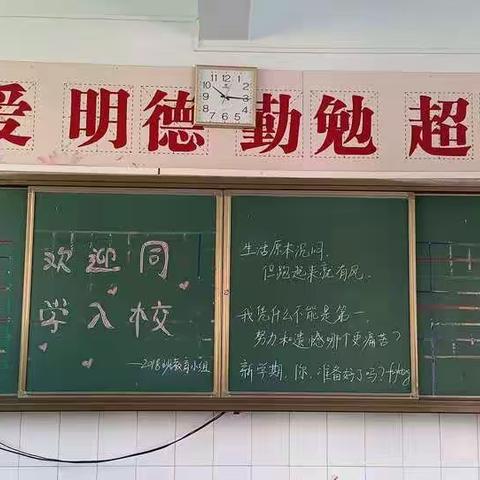 爱 明德 勤勉 超
欢迎同
学入校
——2018班教育小组
生活原本沉闷
但跑起来就有风.
我凭什么不能是第一,
努力和遗憾哪个更痛苦?
新学期,你,准备好了吗?fighting
12
11
1
10
2
9
3
8
4
7
5
6